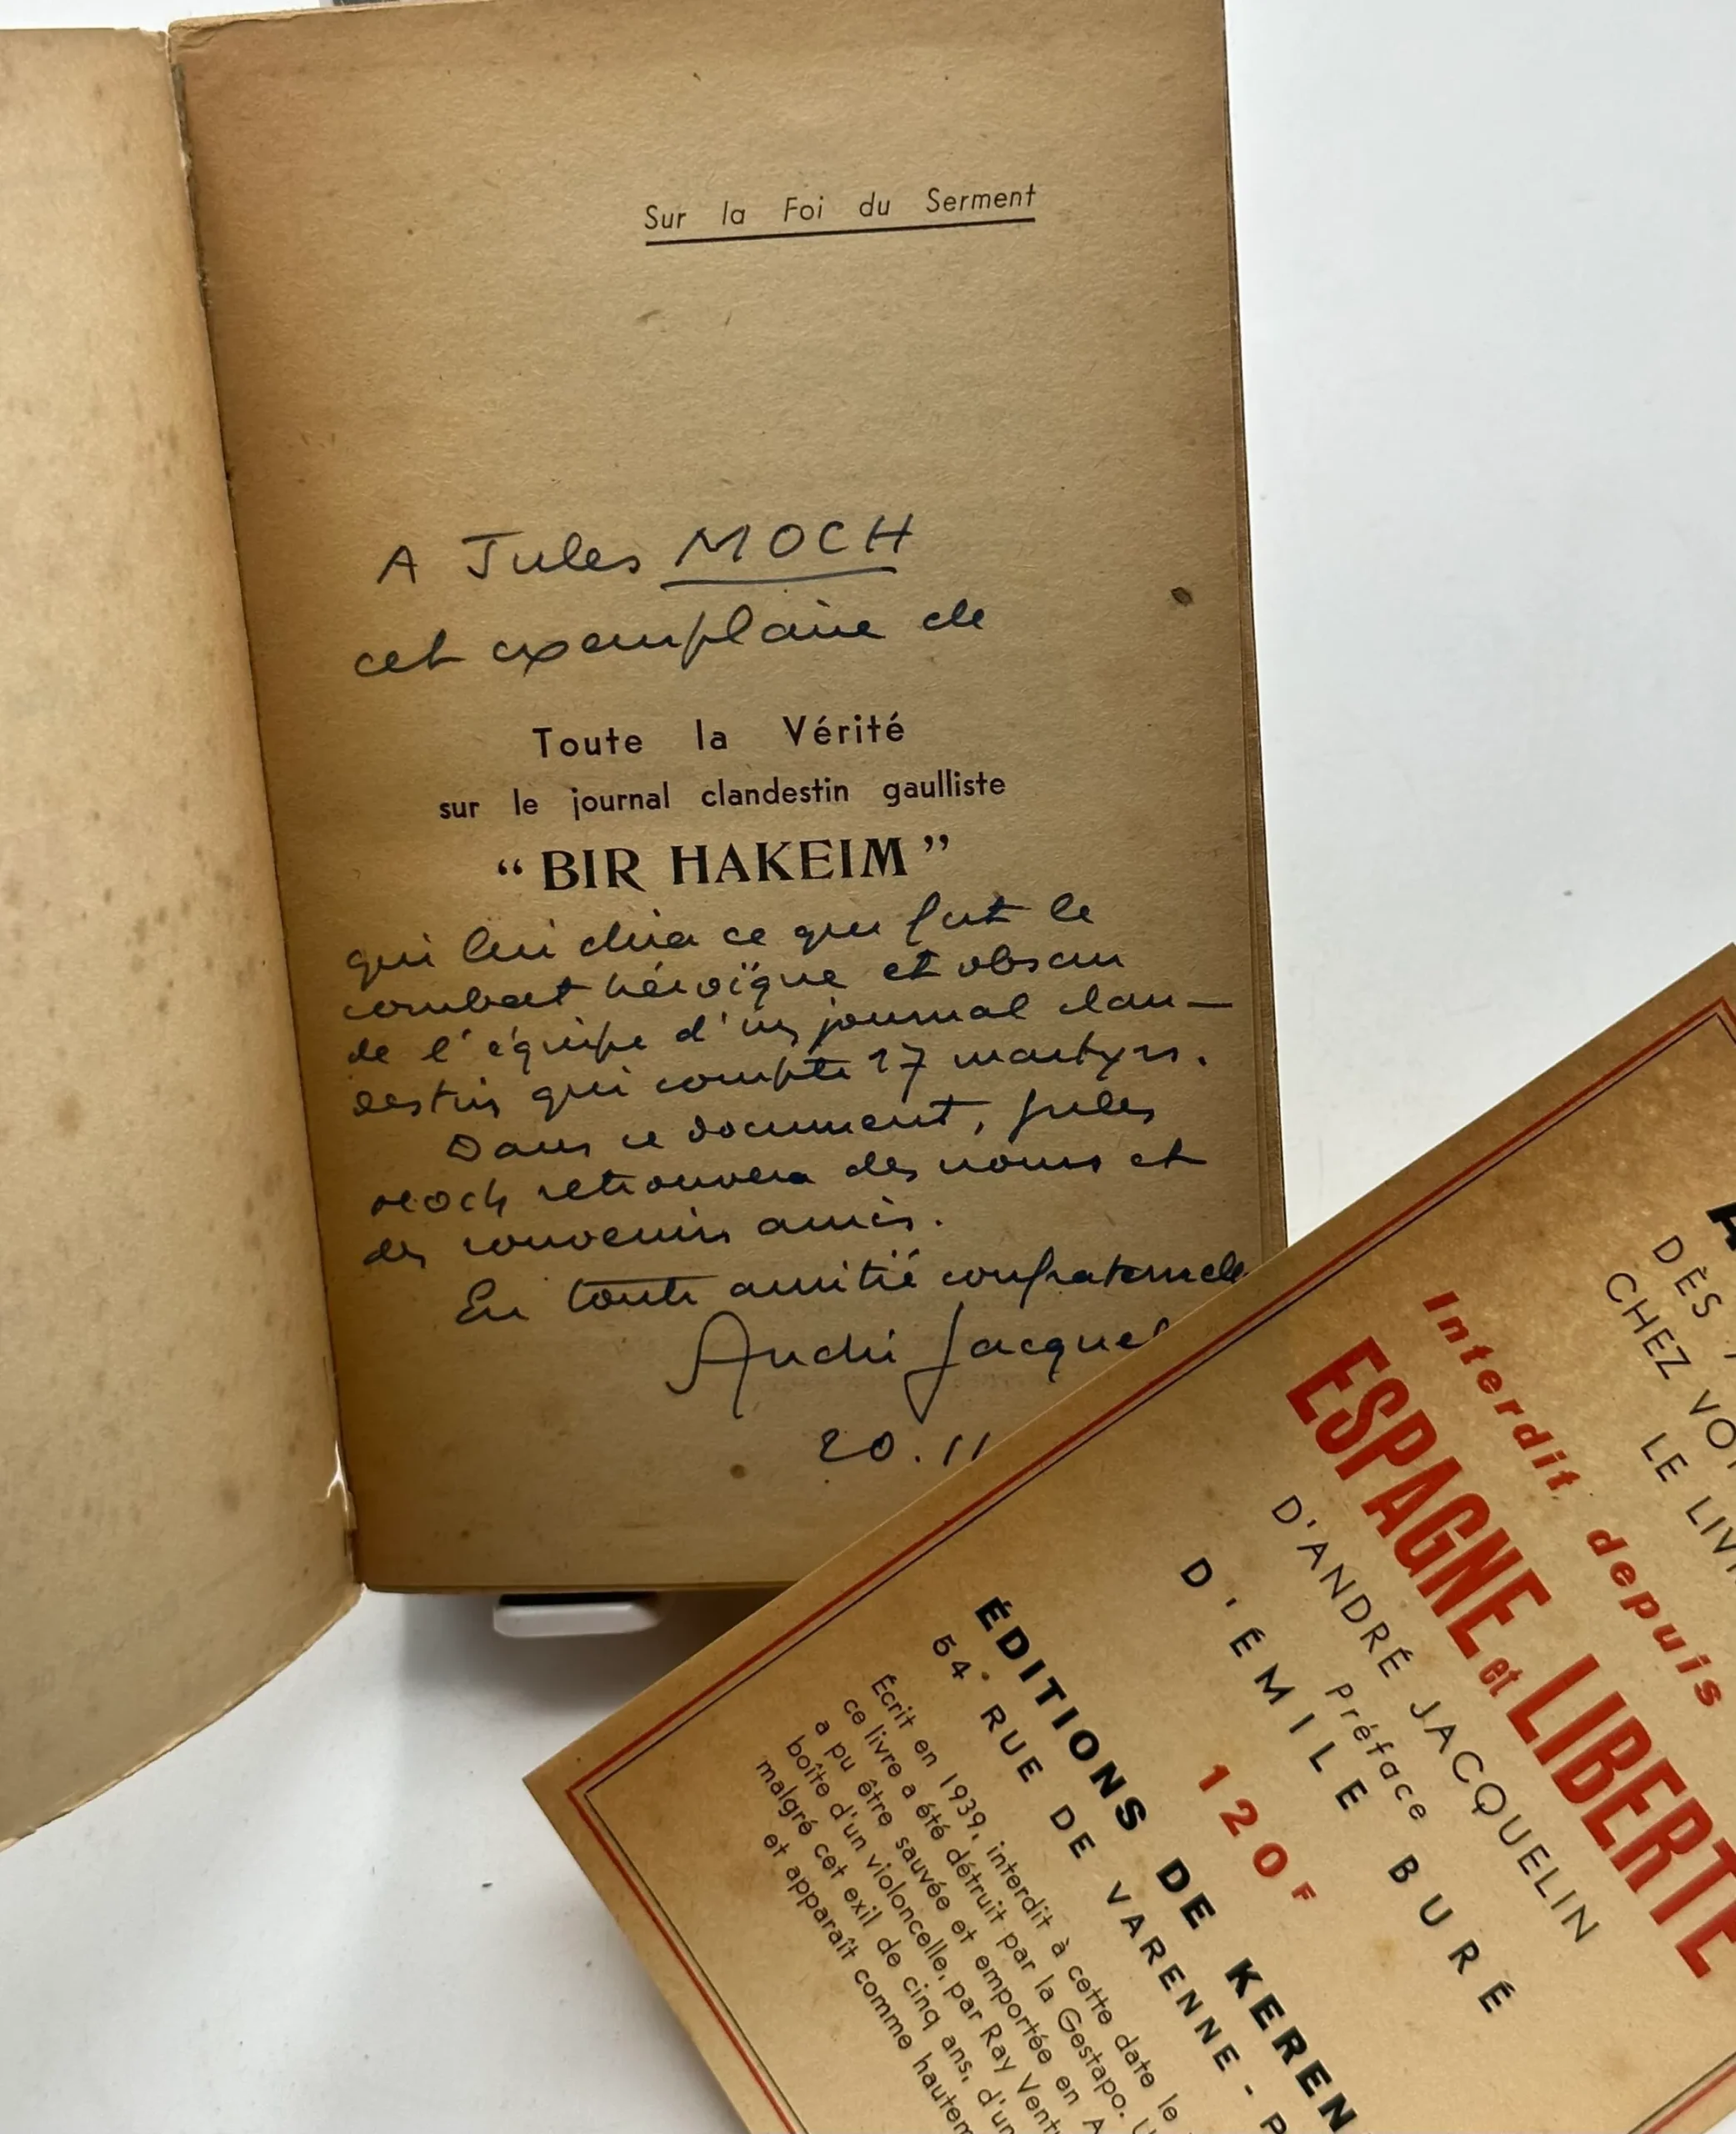 Sur la Foi du Serment
A Jules MOCH
cet exemplaire de
Toute la Vérité
sur le journal clandestin gaulliste
“ BIR HAKEIM ”
qui lui dira ce que fut le
combat héroïque et obscur
de l'équipe d'un journal clan-
destin qui compte 17 martyrs.
Dans ce document, Jules
Moch retrouvera des noms et
des souvenirs amis.
En toute amitié confraternelle
André Jacquel
20.11
DÈS
CHEZ VO
LE LIV
Interdit depuis
ESPAGNE et LIBERTÉ
D'ANDRÉ JACQUELIN
Préface
D'ÉMILE BURÉ
120F
ÉDITIONS DE KEREN
54, RUE DE VARENNE - P
Écrit en 1939, interdit à cette date le
ce livre a été détruit par la Gestapo. U
a pu être sauvée et emportée en A
boîte d'un violoncelle, par Ray Vent
malgré cet exil de cinq ans, d'un
et apparaît comme hautem